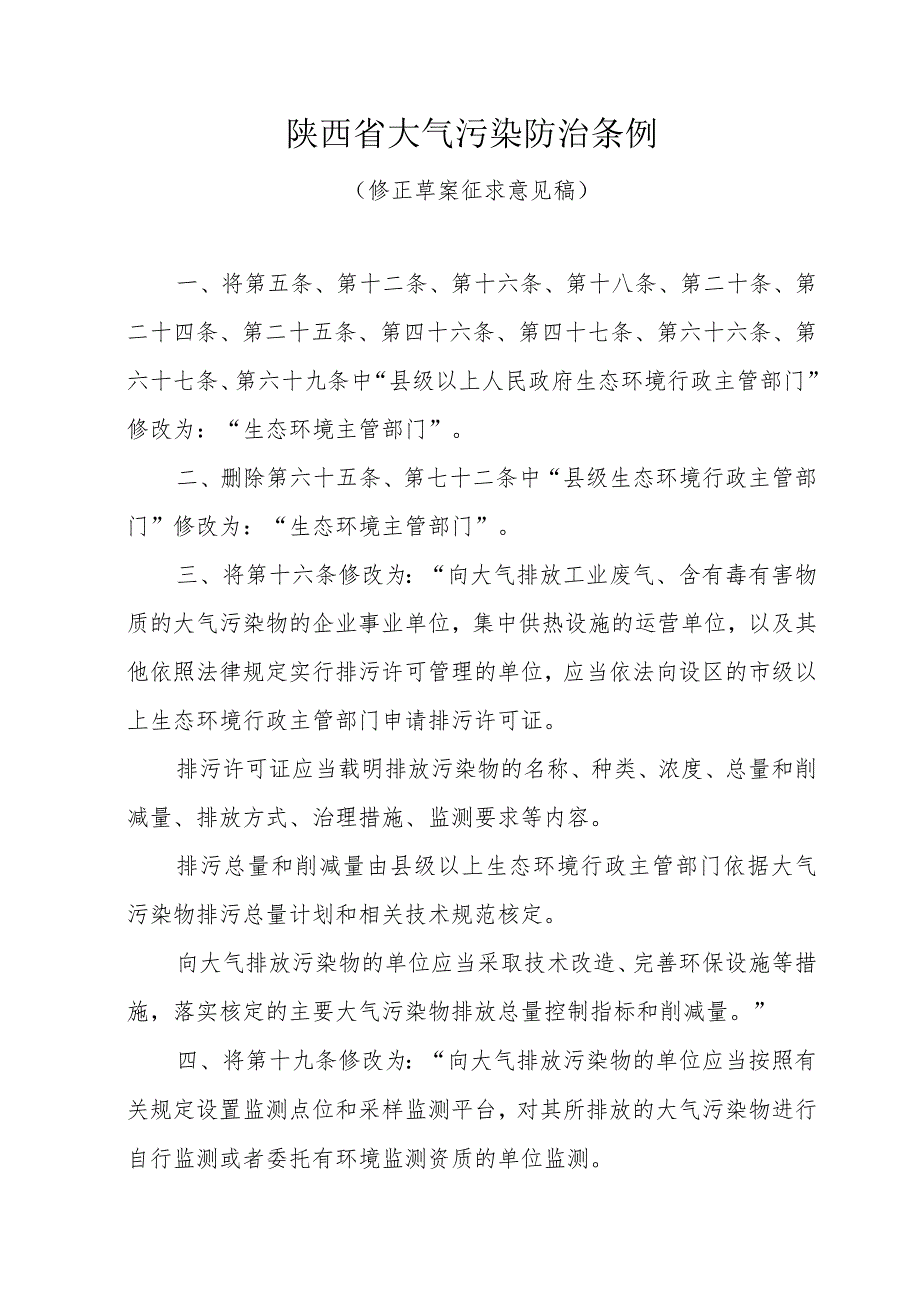 陕西省大气污染防治条例
（修正草案征求意见稿）
一、将第五条、第十二条、第十六条、第十八条、第二十条、第
二十四条、第二十五条、第四十六条、第四十七条、第六十六条、第
六十七条、第六十九条中“县级以上人民政府生态环境行政主管部门”
修改为：“生态环境主管部门”。
二、删除第六十五条、第七十二条中“县级生态环境行政主管部
门”修改为：“生态环境主管部门”。
三、将第十六条修改为：“向大气排放工业废气、含有毒有害物
质的大气污染物的企业事业单位，集中供热设施的运营单位，以及其
他依照法律规定实行排污许可管理的单位，应当依法向设区的市级以
上生态环境行政主管部门申请排污许可证。
排污许可证应当载明排放污染物的名称、种类、浓度、总量和削
减量、排放方式、治理措施、监测要求等内容。
排污总量和削减量由县级以上生态环境行政主管部门依据大气
污染物排污总量计划和相关技术规范核定。
向大气排放污染物的单位应当采取技术改造、完善环保设施等措
施，落实核定的主要大气污染物排放总量控制指标和削减量。”
四、将第十九条修改为：“向大气排放污染物的单位应当按照有
关规定设置监测点位和采样监测平台，对其所排放的大气污染物进行
自行监测或者委托有环境监测资质的单位监测。